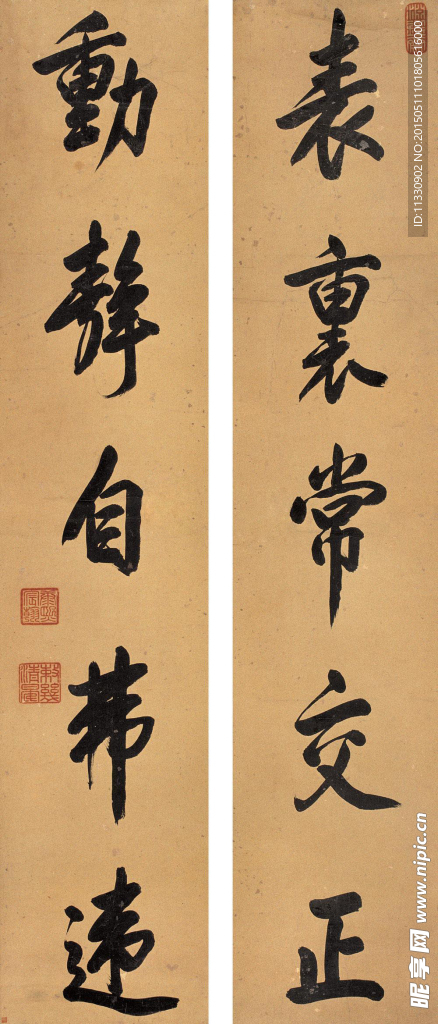 表裏常交正
動静自弗違
ID:11330902 NO:20150511101805616000
昵享网 www.nipic.cn